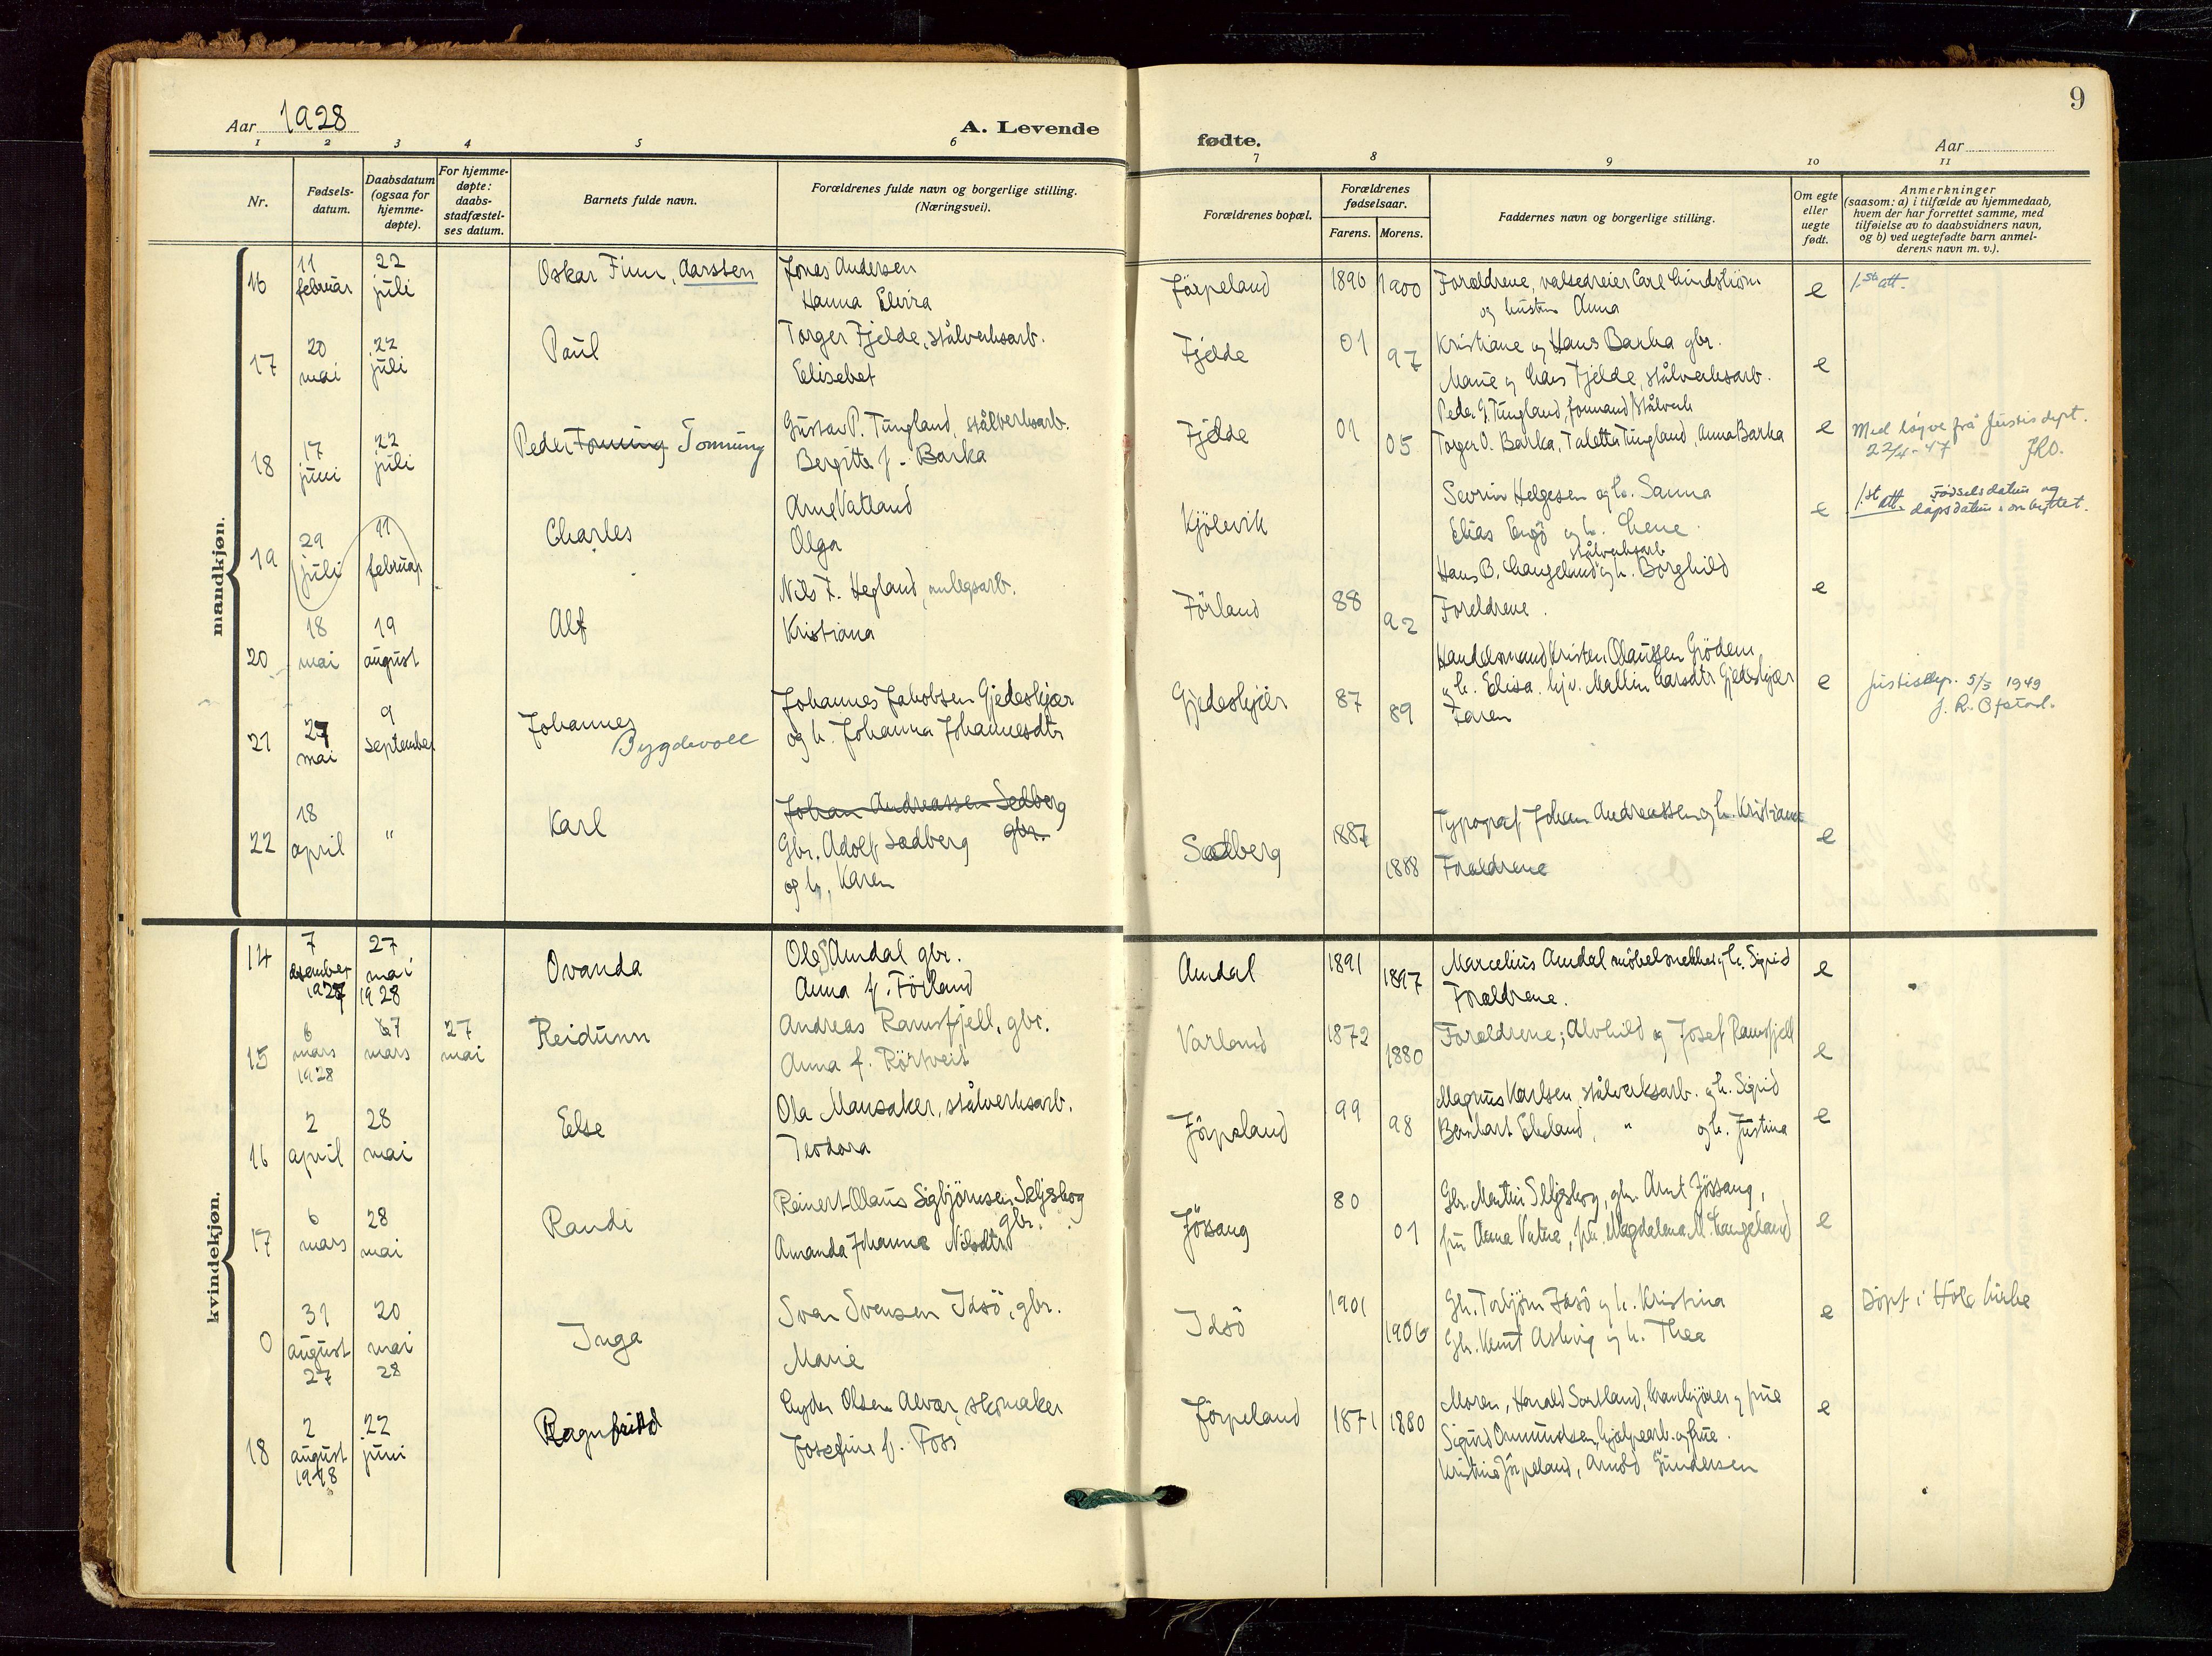 9
Aar 1928
A. Levende
fødte.
Aar
1 2 3 4 5 6 7 8 9 10 11
Nr.
Fødsels-
datum.
Daabsdatum
(ogsaa for
hjemme-
døpte).
For hjemme-
døpte:
daabs-
stadfæstel-
ses datum.
Barnets fulde navn.
Forældrenes fulde navn og borgerlige stilling.
(Næringsvei).
Forældrenes bopæl.
Forældrenes
fødselsaar.
Farens. Morens.
Faddernes navn og borgerlige stilling.
Om egte
eller
uegte
født.
Anmerkninger
(saasom: a) i tilfælde av hjemmedaab,
hvem der har forrettet samme, med
tilføielse av to daabsvidners navn,
og b) ved uegtefødte barn anmel-
derens navn m. v.).
mandkjøn.
16
11
februar
22
juli
Oskar Finn, Aarsten
Jonas Andersen
Hanna Elvira
Jørpeland
1896 1900
Forældrene, valsedreier Carl Lindstrøm
og hustru Anna
e
1. st att.
17
20
mai
22
juli
Paul
Torger Fjelde, stålverksarb.
Elisebet
Fjelde
01 97
Kristiane og Hans Barka gbr.
Marie og Lars Fjelde, stålverksarb.
e
18
17
juni
22
juli
Peder Tonning Tonning
Gustav P. Tungland, stålverksarb.
Bergitte f. Barka
Fjelde
01 05
Peder G. Tungland, formand Stålverk
Torger O. Barka, Taletta Tungland, Anna Barka
e
Med løyve frå Justisdept.
22/4-47
19
29
juli
11
februar
Charles
Arne Vatland
Olga
Kjölevik
Sevrin Helgesen og h. Sanna
Elias Engö og h. Lene.
e
1. st att. Fødselsdatum og
dåpsdatum ombyttet.
20
18
mai
19
august
Alf
Nils F. Hegland, anlegsarb.
Kristiana
Förland
88 92
stålverksarb
Hans B. Langeland og h. Borghild
Foreldrene.
e
21
27
mai
9
september
Johannes
Bygdevoll
Johannes Jakobsen Gjedeskjær
og h. Johanna Johannesdtr
Gjedeskjær
87 89
Handelsmand Kristen Olaussen Grödem
og h. Elisa. hjv. Mallin Larsdtr Gjedeskjær
Faren
e
Justisdep. 5/5 1949
J. R. Ofstad.
22
18
april
"
Karl
Johan Andreassen Sedberg
gbr.
Gbr. Adolf Sedberg
og h. Karen
Sedberg
1887 1888
Typograf Johan Andreassen og h. Kristiane
Forældrene
e
kvindekjøn.
14
7
desember
1927
27
mai
1928
Ovanda
Ole S Amdal gbr.
Anna f. Förland
Amdal
1891 1897
Marcelius Amdal møbelsnekker og h. Sigrid
Forældrene.
e
15
6
mars
1928
27
mars
27
mai
Reidunn
Andreas Ramsfjell, gbr.
Anna f. Rörtveit
Varland
1872 1880
Forældrene; Alvhild og Josef Ramsfjell
e
16
2
april
28
mai
Else
Ola Mansaker, stålverksarb.
Teodora
Jörpeland
99 98
Magnus Karlsen, stålverksarb. og h. Sigrid
Bernhart Ekeland, " og h. Justina
e
17
6
mars
28
mai
Randi
Reinert Olaus Sigbjörnsen Seljeskog
gbr.
Amanda Johanne Nilsdtr
Jössang
80 01
Gbr. Martin Seljeskog, gbr. Arnt Jössang,
fru Anna Vatne, frk. Magdalena M. Langeland
e
0
31
august
27
20
mai
28
Inga
Sven Svensen Idsö, gbr.
Marie
Idsö
1901 1906
Gbr. Torbjörn Idsö og h. Kristina
Gbr. Knut Askvig og h. Thea
e
Döpt i Höle kirke
18
2
august
1928
22
juni
Ragnfrid
Olsen Alvar, skomaker
Josefine f. Foss
Jörpeland
1871 1880
Moren, Harald Sortland, krankjörer og frue
Sigurd Ommundsen, hjelpearb. og frue.
Kristine Jörpeland, Arnold Gundersen
e